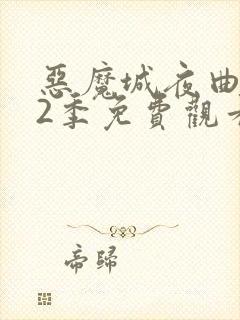 惡魔城夜曲
2季免費觀
帝歸